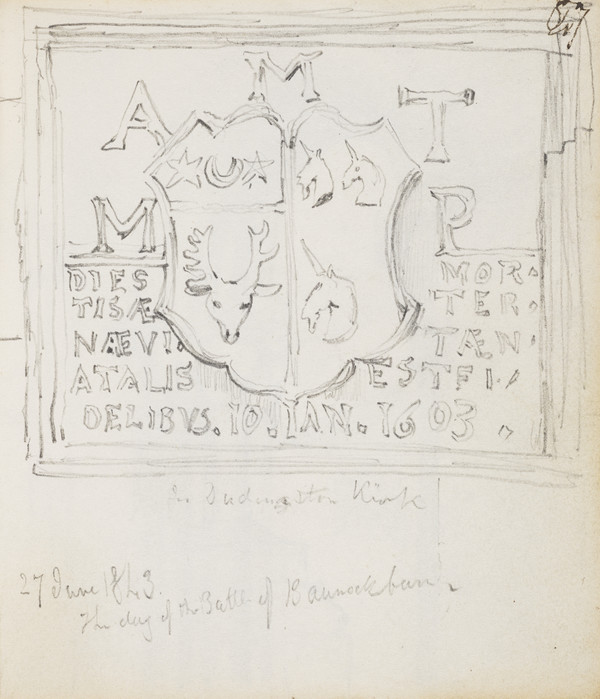 M
A T
M P
DIES MOR·
TISÆ TER·
NÆVI· TÆN·
ATALIS EST FI·
DELIBVS. 10. IAN. 1603.
In Dudingston Kirk
27 June 1843.
The day of the Battle of Bannockburn